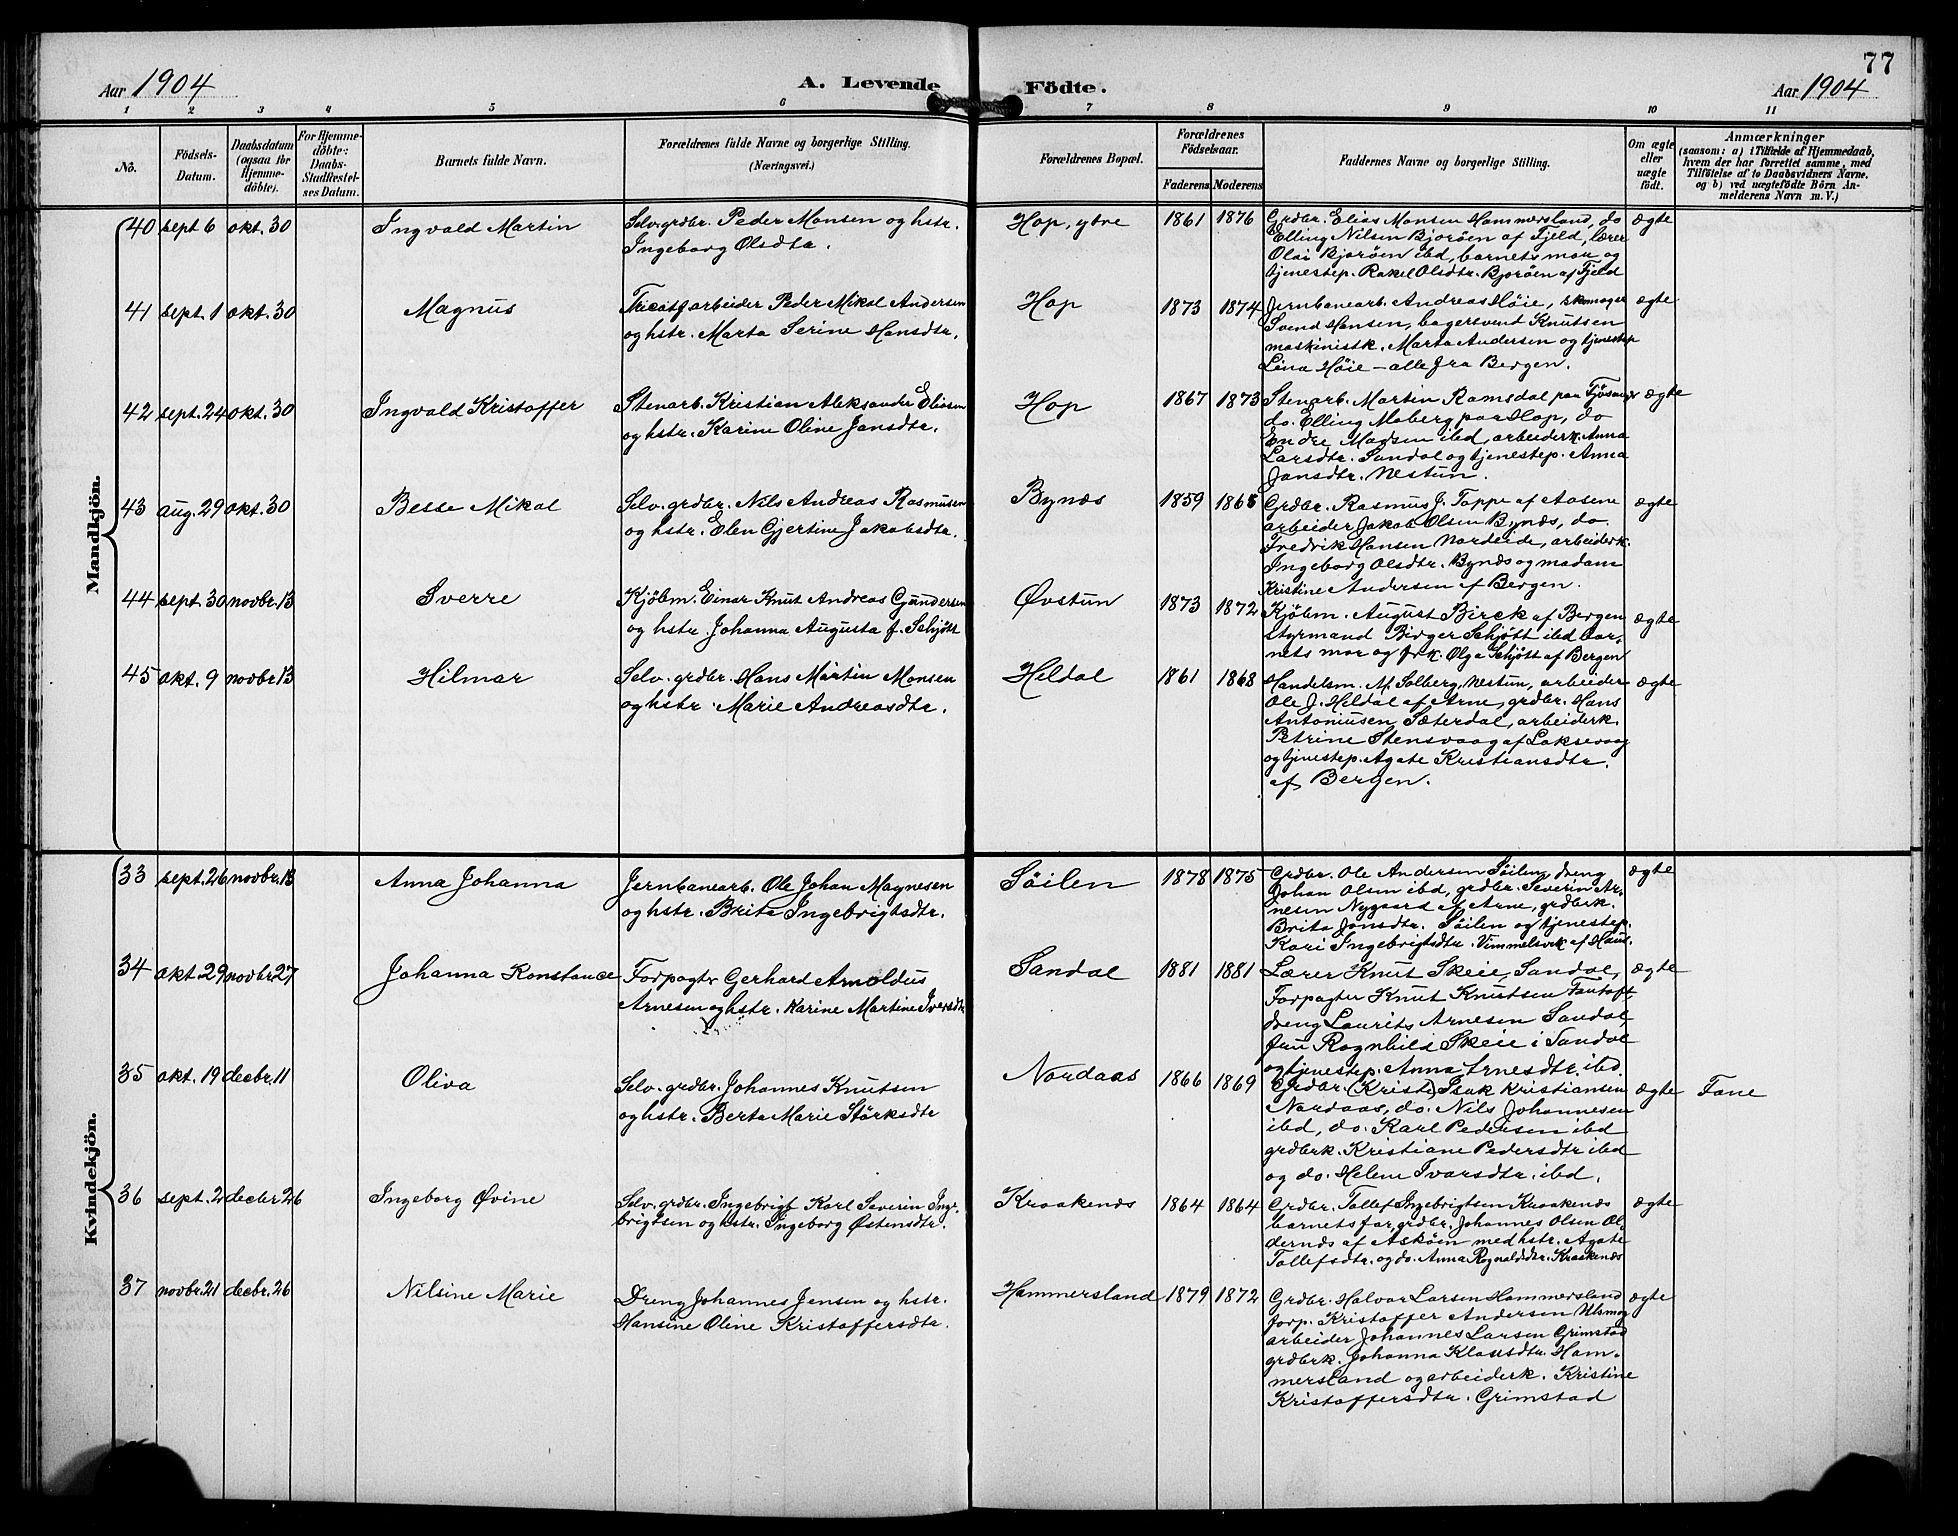 77
Aar 1904
A. Levende Födte.
Aar 1904
1 2 3 4 5 6 7 8 9 10 11
No.
Födsels-Datum.
Daabsdatum (ogsaa for Hjemme-döbte).
For Hjemme-döbte: Daabs-Stadfæstel-ses Datum.
Barnets fulde Navn.
Forældrenes fulde Navne og borgerlige Stilling. (Næringsvei.)
Forældrenes Bopæl.
Forældrenes Födselsaar.
Faderens. Moderens.
Faddernes Navne og borgerlige Stilling.
Om ægte eller uægte födt.
Anmærkninger
(saasom: a) i Tilfælde af Hjemmedaab,
hvem der har forrettet samme, med
Tilföielse af to Daabsvidners Navne,
og b) ved uægtefödte Börn An-
melderens Navn m. V.)
Mandkjön.
40 sept 6 okt. 30 Ingvald Martin
Selv. grdbr. Peder Monsen og hstr.
Ingeborg Olsdtr.
Hop, ytre 1861 1876
Grdbr. Elias Monsen Hammersland, do
Elling Nilsen Bjoröen af Fjeld, lærer
Olai Bjoröen ibd, barnets mor og
tjenestep. Rakel Olsdtr. Bjoröen af Fjeld
ægte
41 sept. 1 okt. 30 Magnus
Tricotfarbeider Peder Mikal Andersen
og hstr. Marta Serine Hansdtr.
Hop 1873 1874
Jernbanearb. Andreas Høie, skomager
Svend Hansen, bagersvend Knutsen
maskinistk. Marta Andersen og tjenestep
Lina Høie – alle fra Bergen.
ægte
42 sept. 24 okt. 30 Ingvald Kristoffer
Stenarb. Kristian Aleksander Eliasen
og hstr. Karine Oline Jansdtr.
Hop 1867 1873
Stenarb. Martin Ramsdal paa Fjøsanger
do. Elling Moberg paa Hop, do
Endre Madsen ibd, arbeiderk. Anna
Larsdtr. Sandal og tjenestep. Anna
Jansdtr. Nestun.
ægte
43 aug. 29 okt. 30 Besse Mikal
Selv. grdbr. Nils Andreas Rasmusen
og hstr. Elen Gjertine Jakobsdtr.
Bynæs 1859 1865
Grdbr. Rasmus J. Toppe af Aasene
arbeider Jakob Olsen Bynæs, do.
Fredrik Hansen Nordeide, arbeiderk.
Ingeborg Olsdtr. Bynæs og madam
Kristine Andersen af Bergen.
ægte
44 sept. 30 novbr. 13 Sverre
Kjøbm. Einar Knut Andreas Gundersen
og hstr Johanna Augusta f. Schjøtt
Øvstun 1873 1872
Kjøbm. August Birck af Bergen
styrmand Birger Schjøtt ibd bar-
nets mor og frk. Olga Schjøtt af Bergen
ægte
45 okt. 9 novbr. 13 Hilmar
Selv. grdbr. Hans Martin Monsen
og hstr. Marie Andreasdtr.
Heldal 1861 1868
Handelsm. M. Solberg, Nestun, arbeider
Ole J. Heldal af Arne, grdbr. Hans
Antoniusen Sæterdal, arbeiderk.
Petrine Stensvaag af Laksevaag
og tjenestep. Agate Kristiansdtr.
af Bergen.
ægte
Kvindekjön.
33 sept. 26 novbr. 13 Anna Johanna
Jernbanearb. Ole Johan Magnesen
og hstr. Brita Ingebrigtsdtr.
Söilen 1878 1875
Grdbr. Ole Andersen Söilen, dreng
Johan Olsen ibd, grdbr. Severin Ar-
nesen Nygaard af Arne, grdbrk.
Brita Jonsdtr. Söilen og tjenestep.
Kari Ingebrigtsdtr. Vimmelsvik af Haus.
ægte
34 okt 29 novbr. 27 Johanna Konstance
Forpagter Gerhard Arnoldus
Arnesen og hstr. Karine Martine Iversdtr
Sandal 1881 1881
Lærer Knut Skeie, Sandal,
Forpagter Knut Knutsen Fantoft,
dreng Laurits Arnesen Sandal,
fru Ragnhild Skeie i Sandal
og tjenestep. Anna Arnesdtr. ibd.
ægte
35 okt. 19 decbr. 11 Oliva
Selv. grdbr. Johannes Knutsen
og hstr. Berta Marie Störksdtr
Nordaas 1866 1869
Grdbr. (Krist) Isak Kristiansen
Nordaas, do. Nils Johannesen
ibd, do. Karl Pedersen ibd
grdbrk. Kristiane Pedersdtr ibd
og do. Helene Ivarsdtr. ibd.
ægte Fane
36 sept. 2 decbr 26 Ingeborg Øvine
Selv. grdbr. Ingebrigt Karl Severin Inge-
brigtsen og hstr. Ingeborg Østensdtr.
Kraakenæs 1864 1864
Grdbr. Tollef Ingebrigtsen Kraakenæs
barnets far, grdbr. Johannes Olsen Ol-
dernæs af Askøen med hstr. Agate
Tollefsdtr. og do. Anna Rognaldsdtr. Kraakenæs
ægte
37 novbr. 21 decbr. 26 Nilsine Marie
Dreng Johannes Jensen og hstr.
Hansine Oline Kristoffersdtr.
Hammersland 1879 1872
Grdbr. Halvor Larsen Hammersland
forp. Kristoffer Andersen Ulsmog
arbeider Johannes Larsen Grimstad
grdbrk. Johanna Klausdtr. Ham-
mersland og arbeiderk. Kristine
Kristoffersdtr. Grimstad
ægte